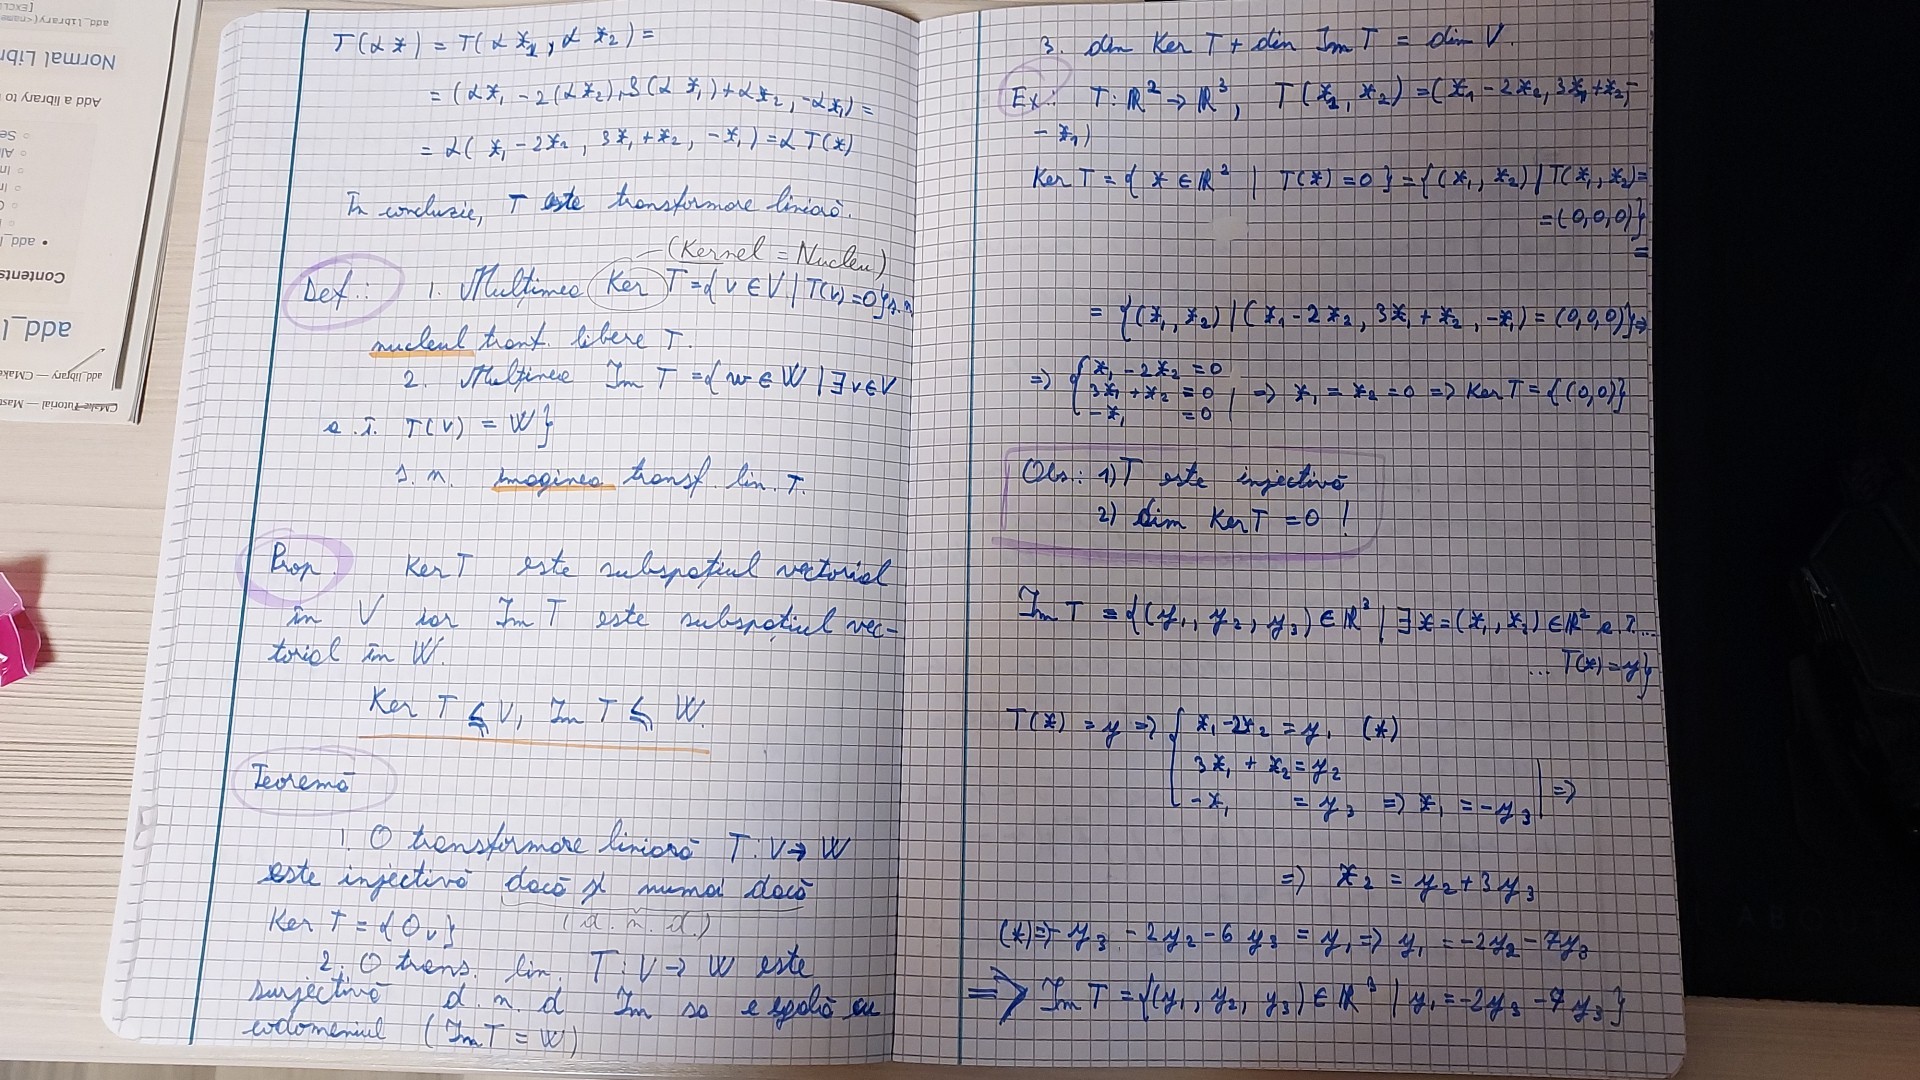 T(αx) = T(αx₁, αx₂) =
= (αx₁ - 2(αx₂), 3(αx₁) + αx₂, -αx₁) =
= α(x₁ - 2x₂, 3x₁ + x₂, -x₁) = αT(x)
În concluzie, T este transformare liniară.
(Kernel = Nucleu)
Def.: 1. Mulțimea Ker T = {v ∈ V | T(v) = 0} s.n
nucleul transf. libere T.
2. Mulțimea Im T = {w ∈ W | ∃ v ∈ V
a.î. T(v) = W}
s.n. imaginea transf. lin. T.
Prop. Ker T este subspațiul vectorial
în V iar Im T este subspațiul vec-
torial în W.
Ker T ≤ V, Im T ≤ W.
Teoremă
1. O transformare liniară T: V → W
este injectivă dacă și numai dacă
Ker T = {0ᵥ} (d.n.d.)
2. O trans. lin. T: V → W este
surjectivă d.n.d Im sa e egală cu
codomeniul (Im T = W)
3. dim Ker T + dim Im T = dim V.
Ex: T: ℝ² → ℝ³, T(x₁, x₂) = (x₁ - 2x₂, 3x₁ + x₂,
- x₁)
Ker T = { x ∈ ℝ² | T(x) = 0 } = {(x₁, x₂) | T(x₁, x₂) =
= (0,0,0)}
=
= {(x₁, x₂) | (x₁ - 2x₂, 3x₁ + x₂, -x₁) = (0,0,0)} ⇒
⇒ { x₁ - 2x₂ = 0
3x₁ + x₂ = 0 | ⇒ x₁ = x₂ = 0 ⇒ Ker T = {(0,0)}
-x₁ = 0
Obs.: 1) T este injectivă
2) dim Ker T = 0 !
Im T = {(y₁, y₂, y₃) ∈ ℝ³ | ∃ x = (x₁, x₂) ∈ ℝ² a.î...
... T(x) = y}
T(x) = y ⇒ { x₁ - 2x₂ = y₁ (*)
3x₁ + x₂ = y₂
-x₁ = y₃ ⇒ x₁ = -y₃ | ⇒
⇒ x₂ = y₂ + 3y₃
(*) ⇒ - y₃ - 2y₂ - 6y₃ = y₁ ⇒ y₁ = -2y₂ - 7y₃
⇒ Im T = {(y₁, y₂, y₃) ∈ ℝ³ | y₁ = -2y₃ - 7y₃}
add_library(<name
[EXCL
Normal Libr
Add a library to
Se
Al
In
add_l
Contents
add_l
add_library — CMake
CMake Tutorial — Mast